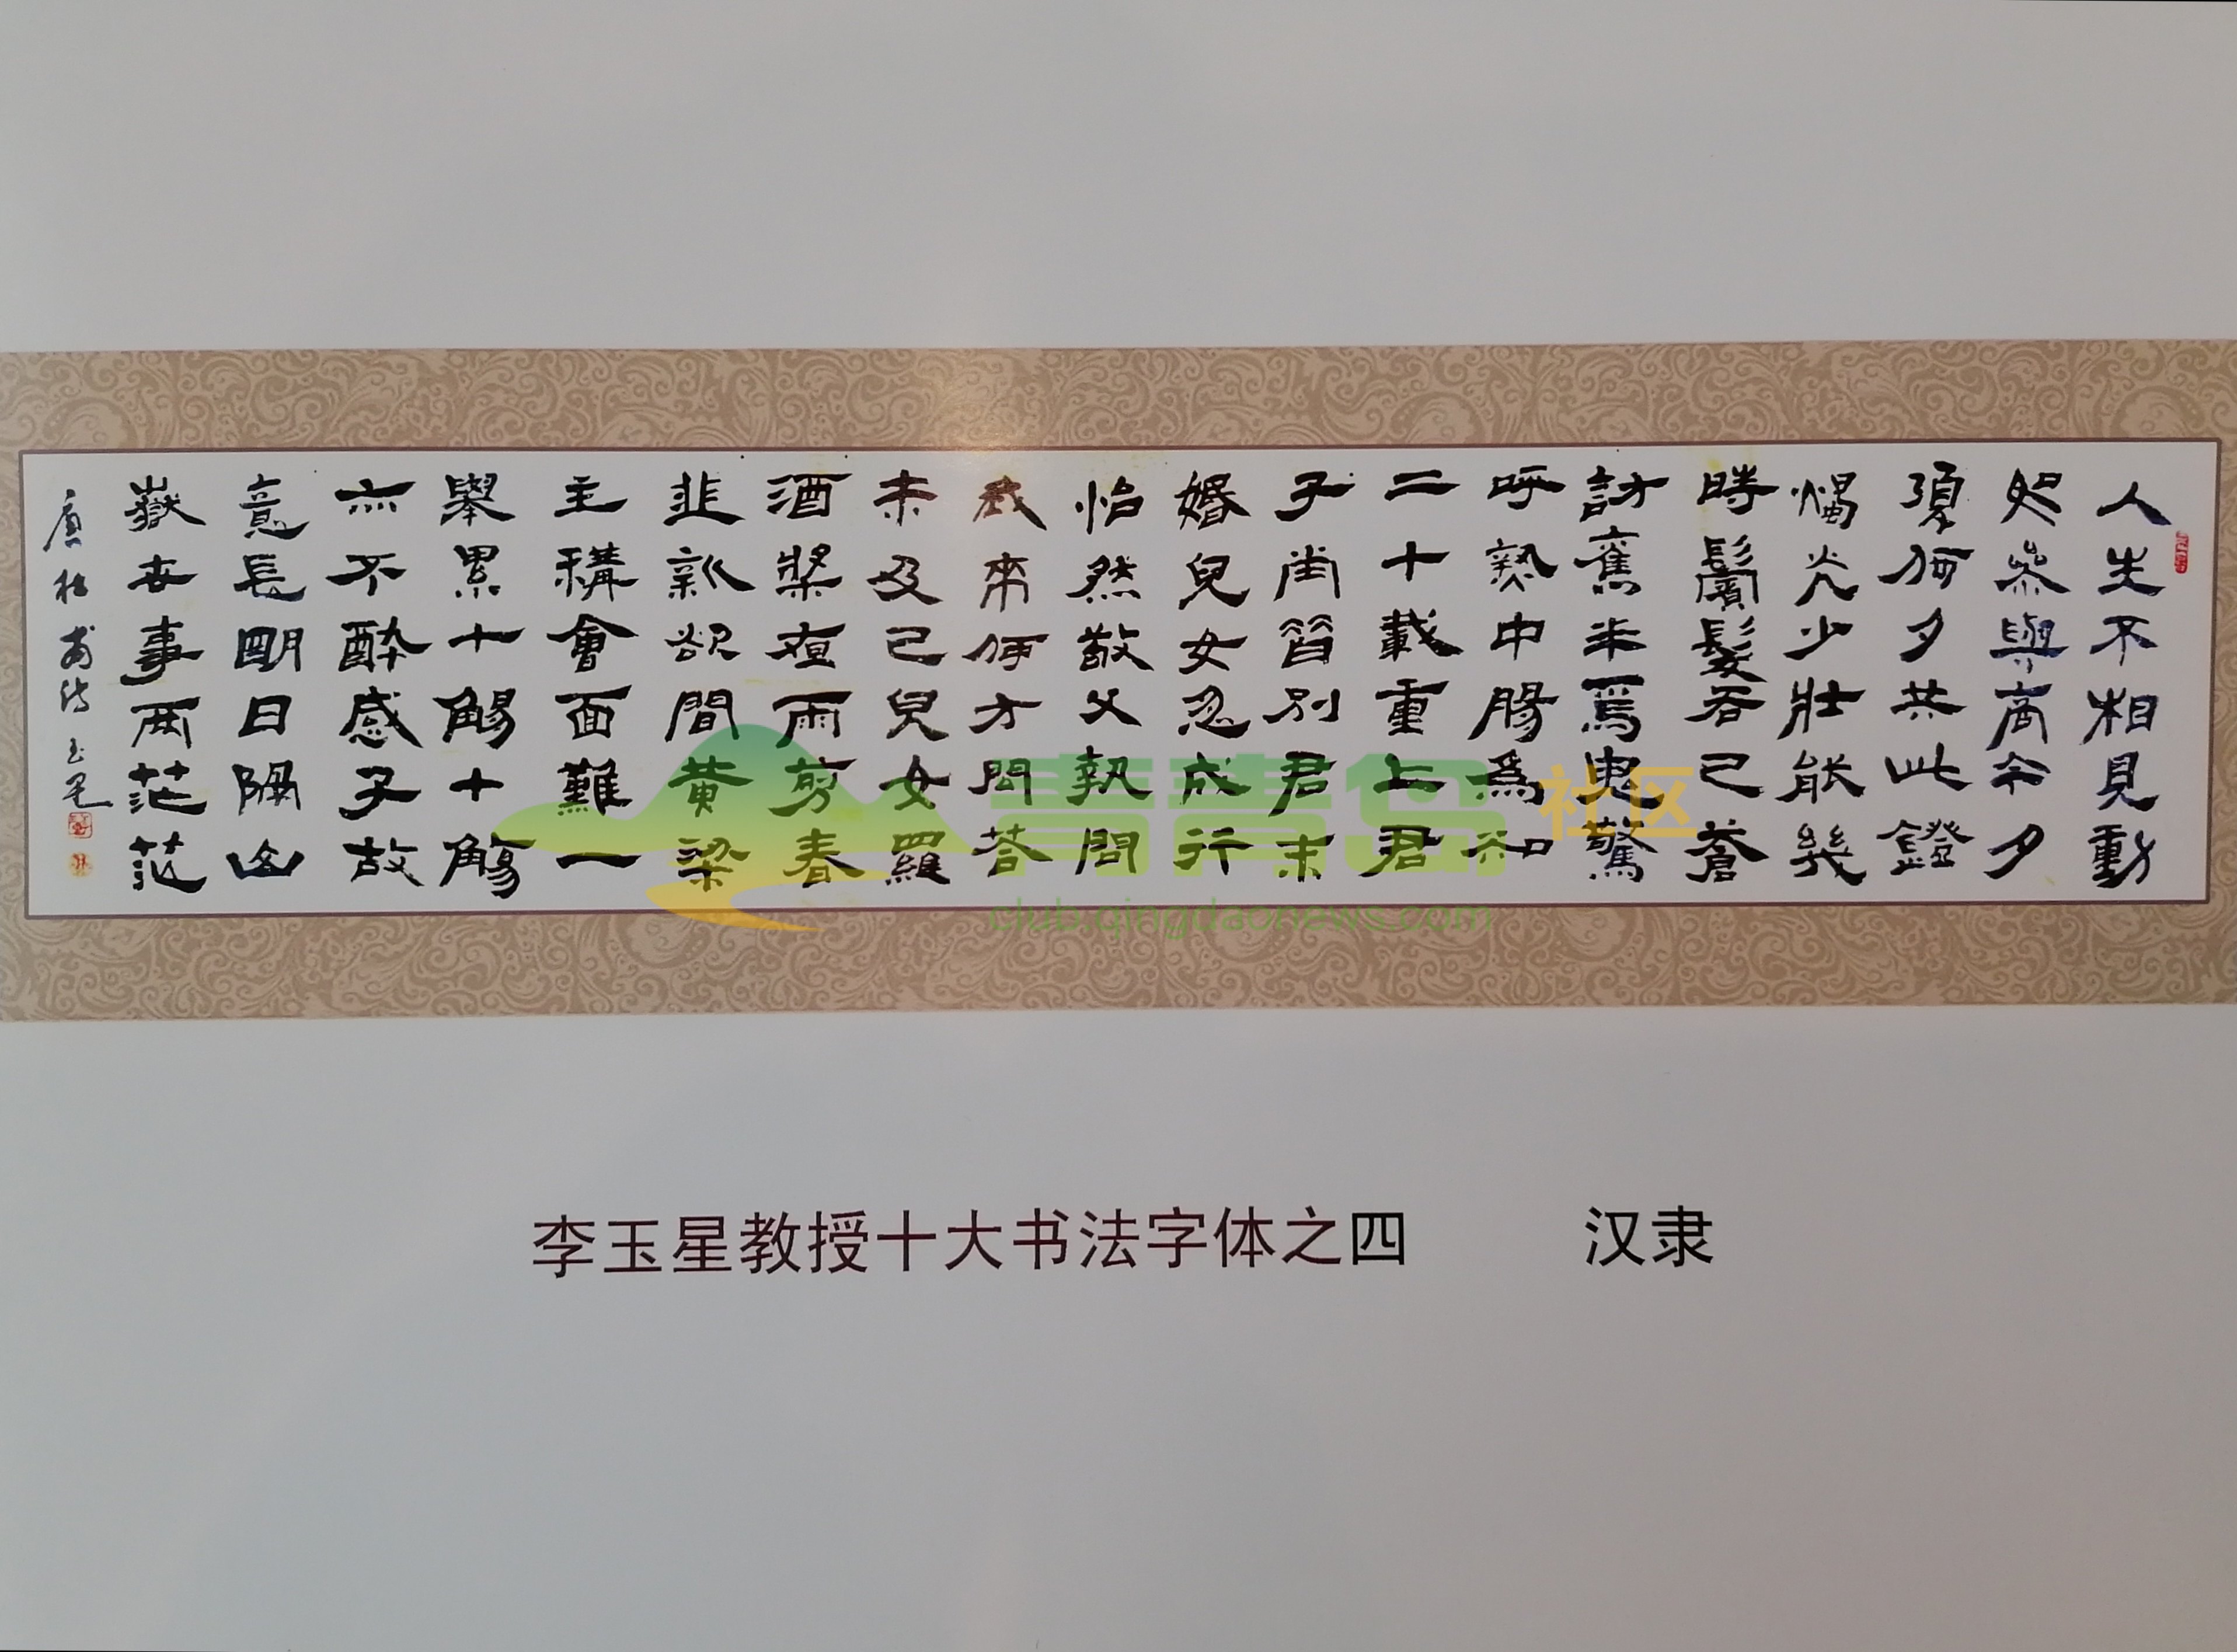 人生不相見動
如参與商今夕
復何夕共此鐙
燭光少壯能幾
時鬢髮各已蒼
訪舊半焉鬼驚
呼熱中腸爲知
二十載重上君
子堂昔別君未
婚兒女忽成行
怡然敬父執問
我來何方問荅
未及已兒女羅
酒漿夜雨剪春
韭新炊間黄粱
主稱會面難一
舉累十觴十觴
亦不醉感子故
意長明日隔山
嶽世事两茫茫
唐杜甫詩 玉星
青青岛社区
club.qingdaonews.com
李玉星教授十大书法字体之四 汉隶